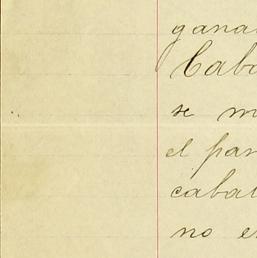 gana
Cab
se m
el pa
cabal
no e